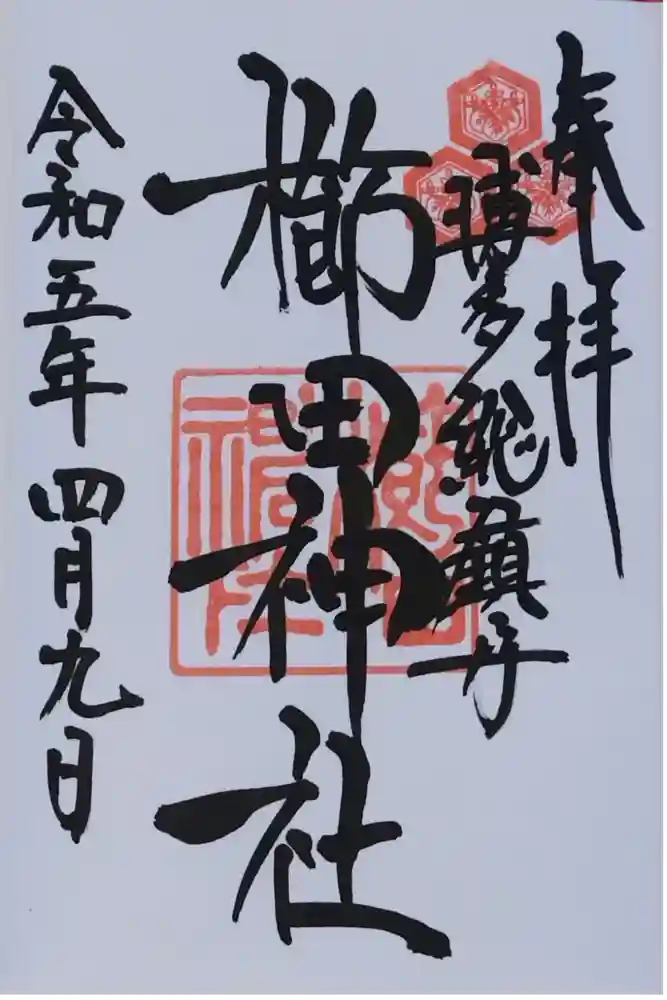 奉拝
博多総鎮守
櫛田神社
令和五年四月九日
櫛田神社